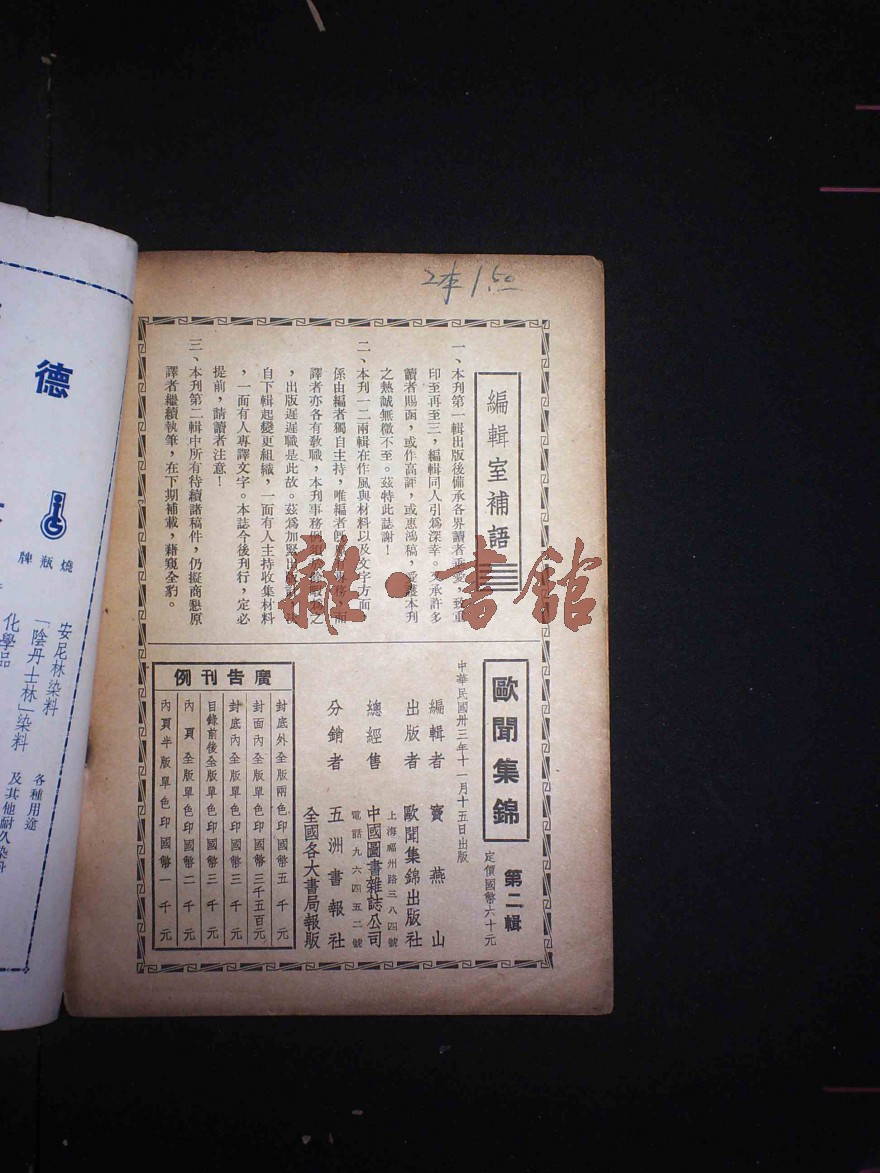 2本 1.50
編輯室補語
一、本刊第一輯出版後備承各界讀者垂愛，致重
印至再至三，編輯同人引爲深幸。又承許多
讀者賜函，或作高評，或惠鴻稿，愛護本刊
之熱誠無微不至。茲特此誌謝！
二、本刊一二兩輯在作風與材料以及文字方面
係由編者獨自主持，唯編者旣
譯者亦各有敎職，本刊事務例
，出版遲遲職是此故。茲爲加緊出版
自下輯起變更組織，一面有人主持收集材料
，一面有人專譯文字。本誌今後刊行，定必
提前，請讀者注意！
三、本刊第二輯中所有待續諸稿件，仍擬商懇原
譯者繼續執筆，在下期補載，藉窺全豹。
雜·書館
歐聞集錦
第二輯
定價國幣六十元
中華民國卅三年十一月十五日出版
編輯者 竇燕山
出版者 歐聞集錦出版社
上海福州路三八四號
總經售 中國圖書雜誌公司
電話九六四五二號
分銷者 五洲書報社
全國各大書局報販
廣告刊例
封底外全版兩色印國幣五千元
封面內全版單色印國幣三千五百元
封底內全版單色印國幣三千元
目錄前後全版單色印國幣三千元
內頁全版單色印國幣二千元
內頁半版單色印國幣一千元
德
燒瓶牌
安尼林染料
「陰丹士林」染料
化學品
各種用途
及其他耐久染料